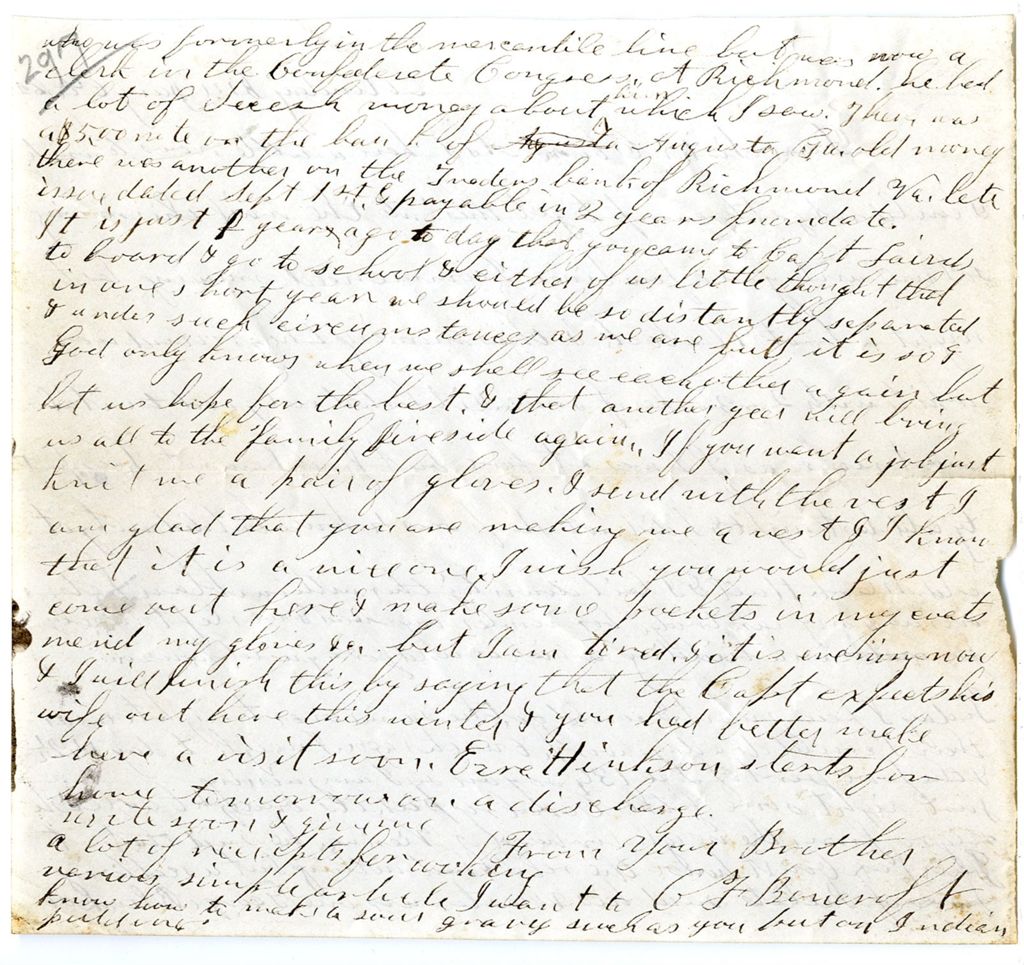 29
was formerly in the mercantile line but was now a
clerk in the Confederate Congress, At Richmond. he had
a lot of Secesh money about him which I saw. There was
a $500 note on the bank of Augusta Ga old money
there was another on the Traders bank of Richmond Va. late
issue dated Sept 1st & payable in 2 years from date.
It is just years ago to day that you came to Capt Lairds
to board & go to school & either of us little thought that
in one short year we should be so distantly separated
& under such circumstances as we are but it is so &
God only knows when we shall see each other again but
let us hope for the best. & that another year will bring
us all to the family fireside again. If you want a job just
knit me a pair of gloves. & send with the vest I
am glad that you are making me a vest & I know
that it is a nice one. I wish you would just
come out here & make some pockets in my coats
mend my gloves &c. but I am tired & it is evening now
& I will finish this by saying that the Capt expects his
wife out here this winter & you had better make
have a visit soon. Ezra Hinkson starts for
home tomorrow on a discharge.
write soon & give me
a lot of receipts for cooking From Your Brother
various simple article I want to C F Bancroft
know how to make a sour gravy such as you put on Indian
pudding.